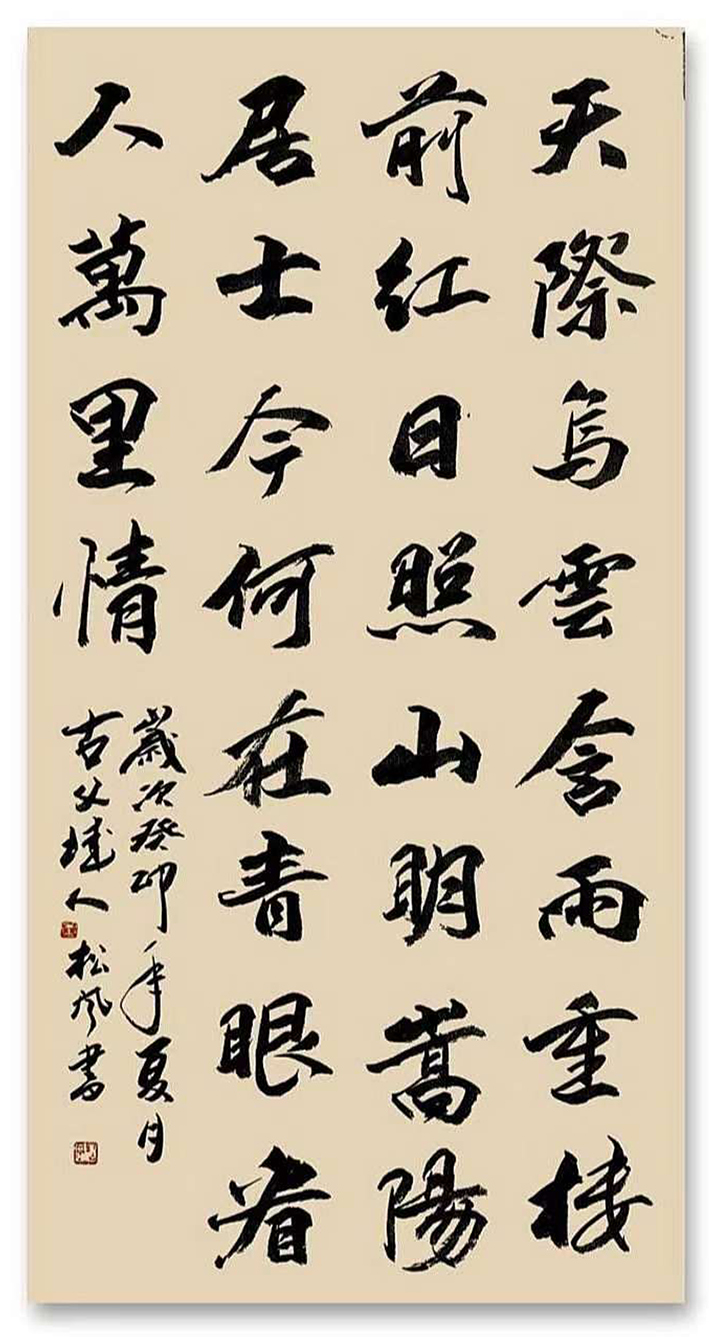 天際烏雲含雨重樓
前紅日照山明嵩陽
居士今何在青眼看
人萬里情
歲次癸卯年夏月
古父璉人松風書